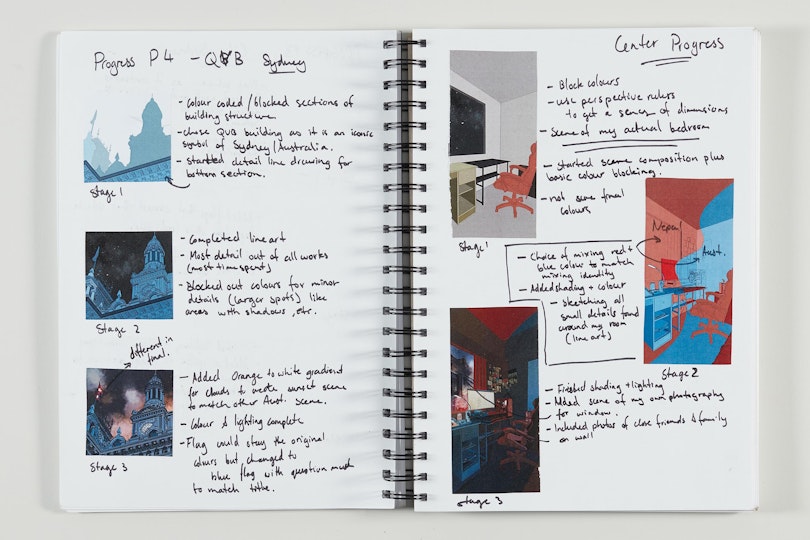 Progress P4 - QVB Sydney
- colour coded / blocked sections of
building structure.
- chose QVB building as it is an iconic
symbol of Sydney/Australia.
- started detail line drawing for
bottom section.
Stage 1
- Completed line art
- Most detail out of all works
(most time spent)
- Blocked out colours for minor
details (larger spots) like
areas with shadows, etc.
Stage 2
different in
final.
- Added Orange to white gradient
for clouds to create sunset scene
to match other Aust. scene.
- Colour & lighting complete
- Flag could stay the original
colours but changed to
blue flag with question mark
to match title.
Stage 3
Center Progress
- Block colours
- use perspective rulers
to get a sense of dimensions
- Scene of my actual bedroom
- Started scene composition plus
basic colour blocking.
- not some final
colours
Stage 1
Nepal
Aust.
- Choice of mixing red +
blue colour to match
mixing identity
- Added shading + colour
- Sketching all
small details found
around my room
(line art)
Stage 2
- Finished shading + lighting
- Added scene of my own photography
for window.
- Included photos of close friends & family
on wall
Stage 3